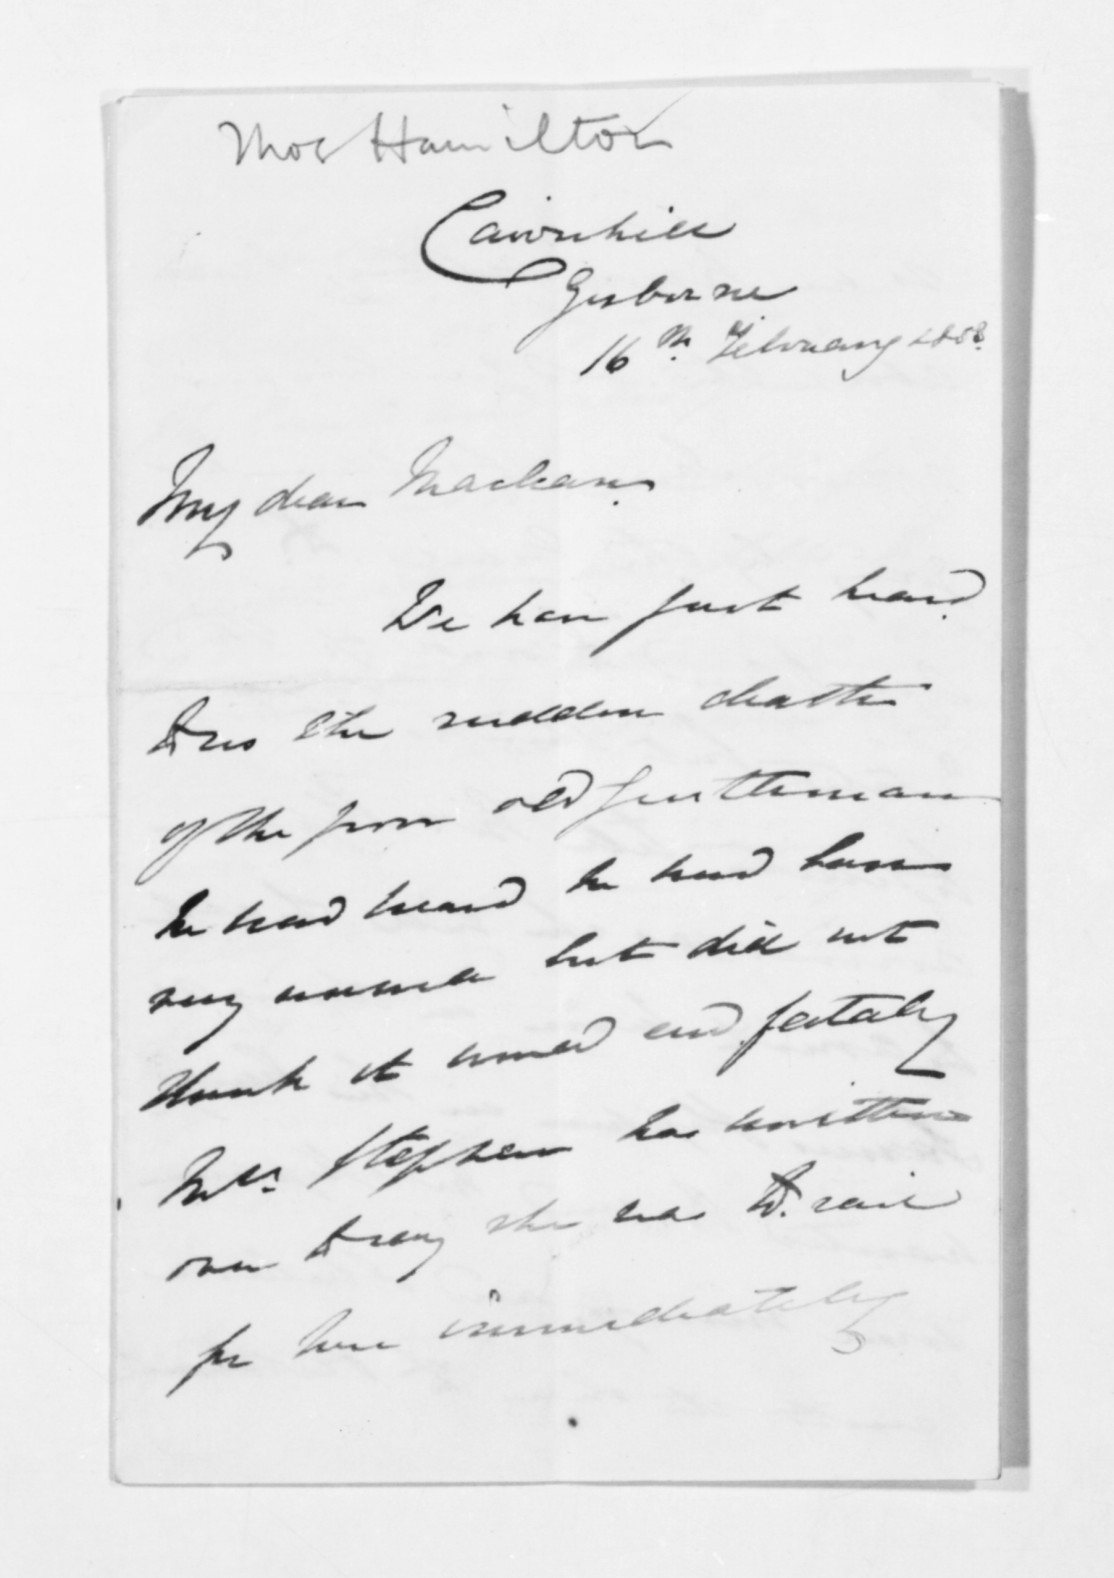 Thos Hamilton
Cairnhill
Gisborne
16th February 1888.
My dear Maclean.
We have just heard
the sudden death
of the poor old gentleman
We had heard he had been
very unwell but did not
think it would end fatally
Mrs. Stephen has written
over to say she has to sail
for here immediately